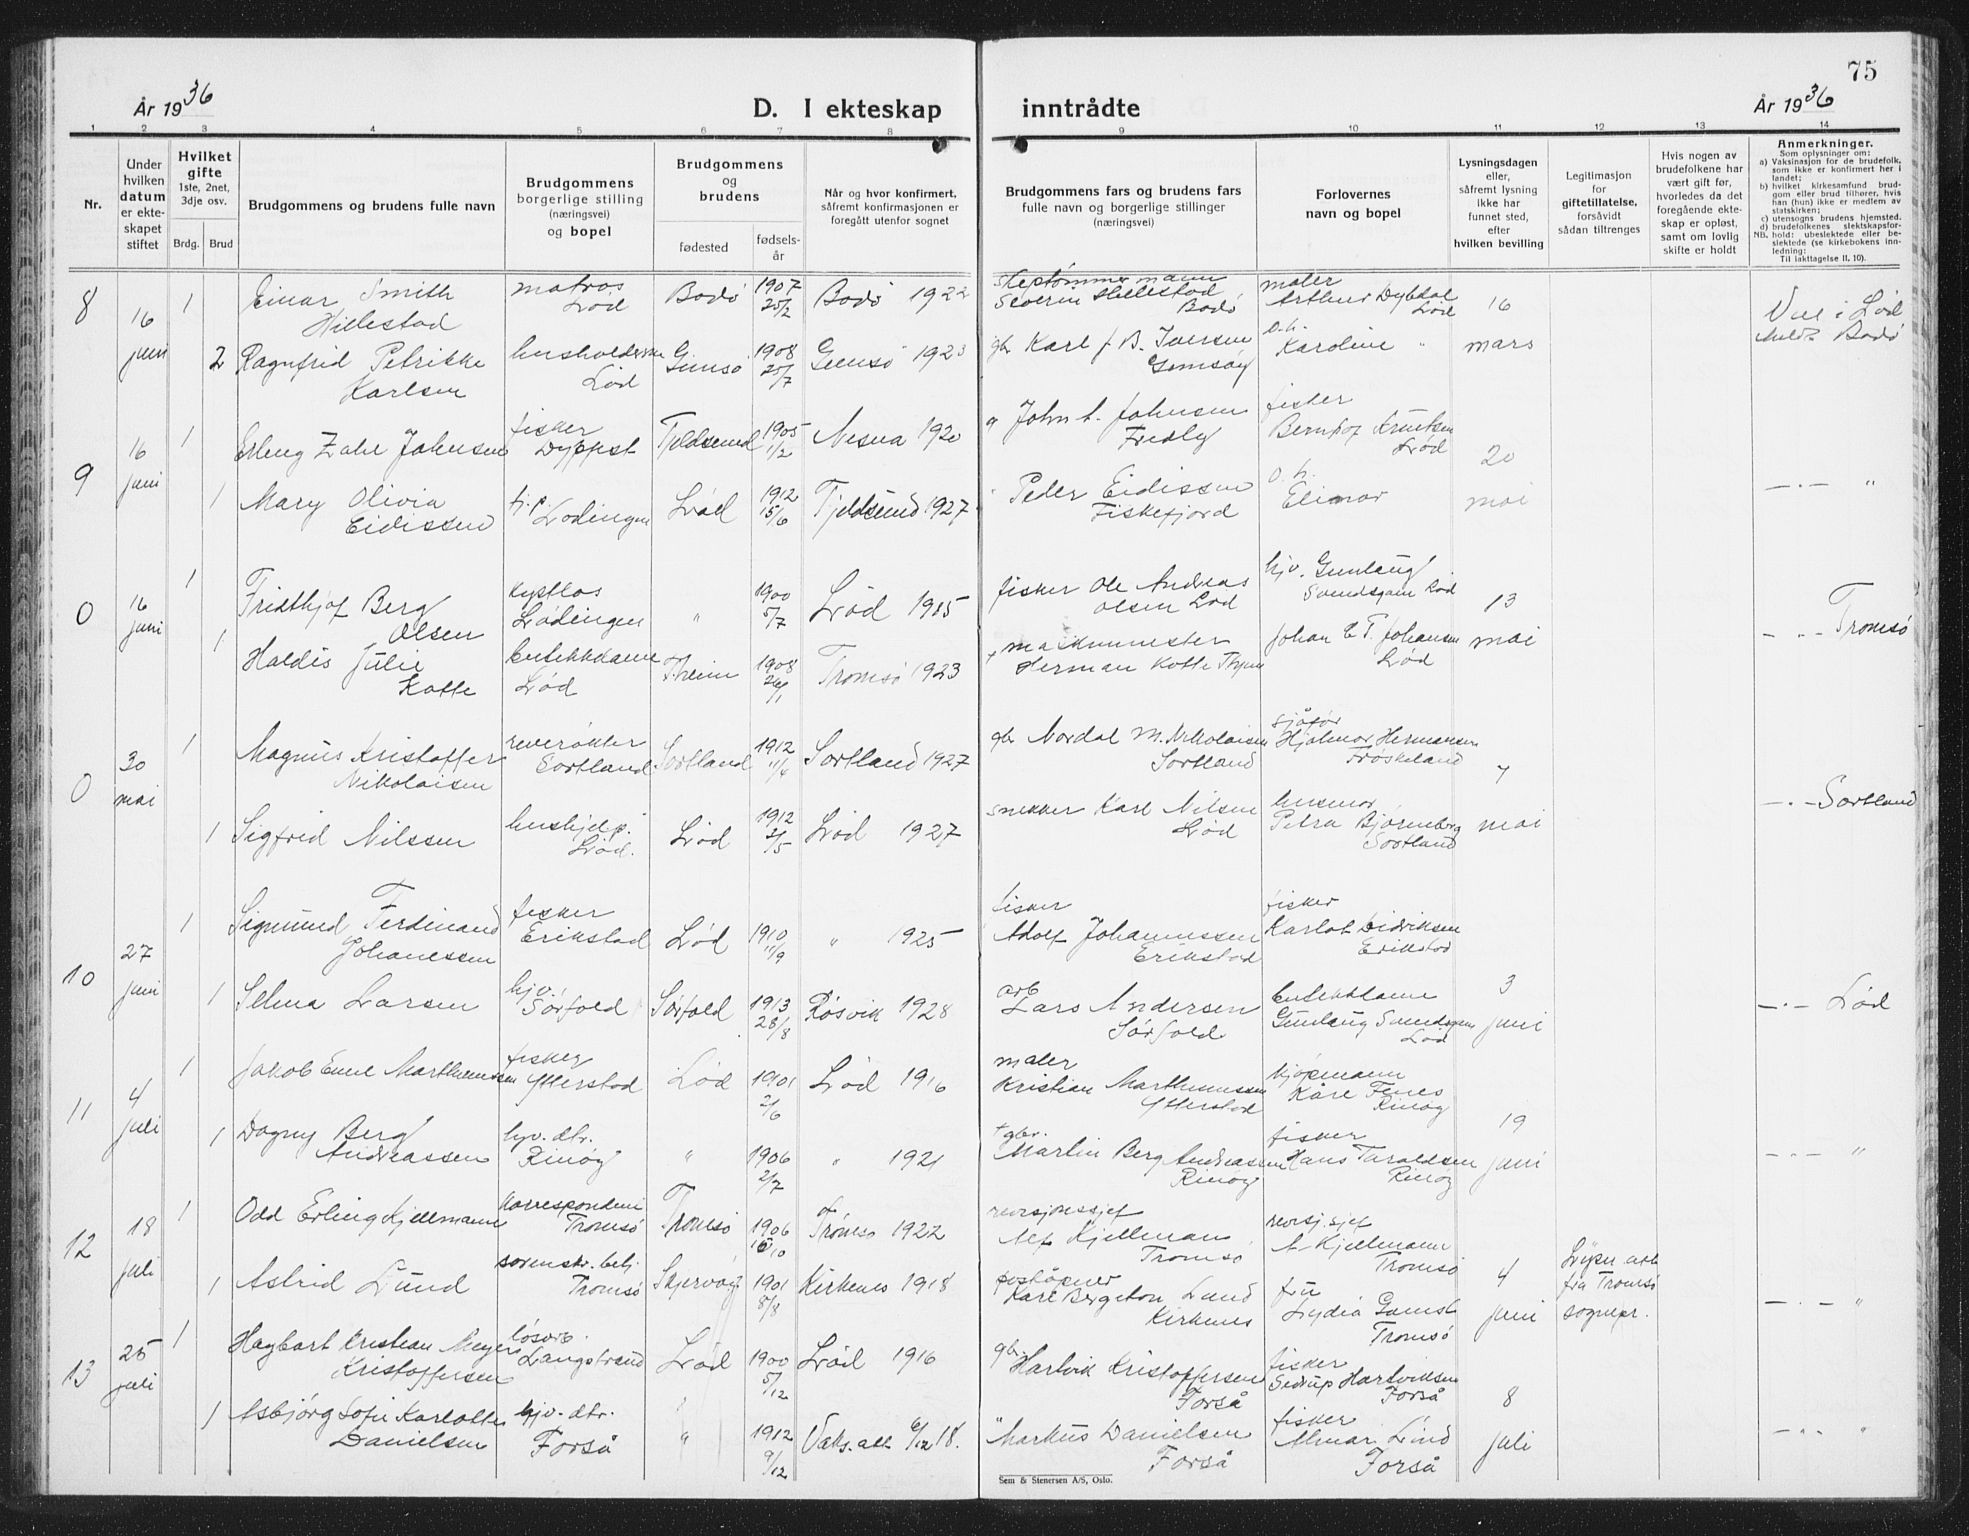 75
År 1936
D. I ekteskap inntrådte
År 1936
1 2 3 4 5 6 7 8 9 10 11 12 13 14
Nr.
Under hvilken datum er ekteskapet stiftet
Hvilket gifte
1ste, 2net, 3dje osv.
Brdg. Brud
Brudgommens og brudens fulle navn
Brudgommens borgerlige stilling (næringsvei) og bopel
Brudgommens og brudens
fødested
fødselsår
Når og hvor konfirmert, såfremt konfirmasjonen er foregått utenfor sognet
Brudgommens fars og brudens fars
fulle navn og borgerlige stillinger
(næringsvei)
Forlovernes navn og bopel
Lysningsdagen eller, såfremt lysning ikke har funnet sted, efter hvilken bevilling
Legitimasjon for giftetillatelse, forsåvidt sådan tiltrenges
Hvis nogen av brudefolkene har vært gift før, hvorledes da det foregående ekteskap er opløst, samt om lovlig skifte er holdt
Anmerkninger.
Som oplysninger om:
a) Vaksinasjon for de brudefolk, som ikke er konfirmert her i landet;
b) hvilket kirkesamfund brudgom eller brud tilhører, hvis han (hun) ikke er medlem av statskirken;
c) utensogns brudens hjemsted.
d) brudefolkenes slektskapsforhold: ubeslektede eller beslektede (se kirkebokens innledning:
NB.
Til iakttagelse II, 10).
8 16 juni 1 Einar Smith Hillestad matros Lød Bodø 1907 25/2 Bodø 1922 Severin Hillestad Bodø maler Arthur Dybdal Lød 16 mars
2 Ragnfrid Petrikke Karlsen Lød Gimsø 1908 25/7 Gimsø 1923 gbr Karl J. B. Iversen Gimsøy Karoline "
9 16 juni 1 Johnsen fisker Tjeldsund 1905 1/2 Nesna 1920 John A. Johnsen fisker Knutsen Lød 20 mai
1 Mary Olivia Eidissen Lødingen Lød 1912 15/6 Tjeldsund 1927 Peder Eidissen Fiskefjord Elinor — " — "
0 16 juni 1 Fridthjof Berg Olsen Lødingen " 1900 5/7 Lød 1915 fisker Ole Andreas Olsen Lød hjv. Gunlaug Svendsgam Lød 13 mai
1 Haldis Julie Kotte Lød Tr.heim 1908 26/1 Tromsø 1923 Herman Kotte Johan E. T. Johansen Lød — " — Tromsø
0 30 mai 1 Magnus Kristoffer Nikolaisen reverøkter Sortland Sortland 1912 11/4 Sortland 1927 gbr Nordal M. Nikolaisen Sortland sjåfør Hjalmar Hermansen Frøskeland 7 mai
1 Sigfrid Nilssen hushjelp. Lød. Lød 1912 2/5 Lød 1927 snekker Karl Nilsen Lød husmor Petra Bjørneberg Sortland — " — Sortland
10 27 juni 1 Sigmund Ferdinand Johanessen fisker Erikstad Lød 1910 11/9 " 1925 fisker Adolf Johannessen Erikstad fisker Karlot Didriksen Erikstad 3 juni
1 Selma Larsen hjv. Sørfold Sørfold 1913 28/8 Røsvik 1928 arb Lars Andersen Sørfold Lød — " — Lød
11 4 juli 1 Jakob Emil Marthinussen fisker Ytterstad Lød 1901 2/6 Lød 1916 maler Kristian Marthinussen Ytterstad kjøpmann Kåre Fenes Rinøy 19 juni
1 Dagny Berg Andreassen hjv. dtr. Rinøy " 1906 2/7 " 1921 + gbr. Martin Berg Andreassen Rinøy fisker Hans Taraldsen Rinøy — " — "
12 18 juli 1 Odd Erling Kjellmann korrespondent Tromsø Tromsø 1906 Tromsø 1922 revisjonssjef Alf Kjellman Tromsø revisj.sjef A. Kjellmann Tromsø 4 juni fra Tromsø sognepr.
1 Astrid Lund sorenskr. betj. Tromsø Skjervøy 1901 8/8 Kirkenes 1918 Karl Bergeton Lund Kirkenes fru Lydia Gamst Tromsø — " — "
13 25 juli 1 Hagbart Kristian Meyer Kristoffersen løsarb. Langstrand Lød 1900 5/12 Lød 1916 gbr. Hartvik Kristoffersen Forså fisker Sedrup Hartviksen Forså 8 juli
1 Asbjørg Sofie Karlotte Danielsen hjv. dtr. Forså " 1912 9/12 Vaks.att 6/12 18. " Markus Danielsen Forså fisker Almar Lind Forså — " — "
Sem & Stenersen A/S, Oslo.